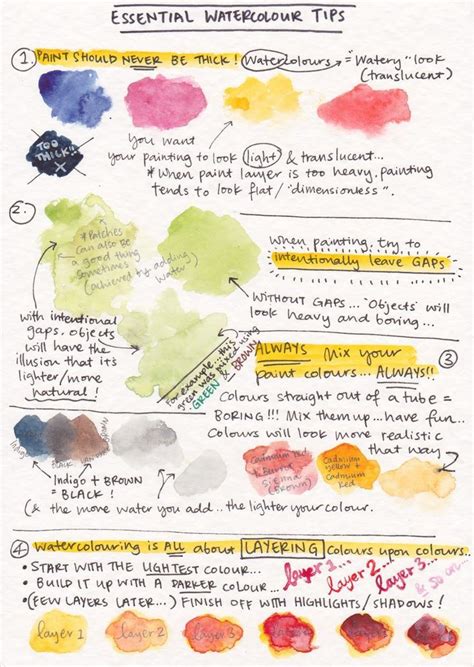 ESSENTIAL WATERCOLOUR TIPS
1. PAINT SHOULD NEVER BE THICK! Watercolours = "Watery" look
(translucent)
TOO
THICK!!
X
You want
your painting to look light & translucent...
* When paint layer is too heavy, painting
tends to look flat / "dimensionless".
2.
* Patches
can also be
a good thing
sometimes
(achieved by adding
water)
When painting, try to
intentionally leave GAPS
WITHOUT GAPS... 'Objects' will
look heavy and boring...
with intentional
gaps, objects
will have the
illusion that it's
lighter/more
natural!
For example... this
green was mixed using
GREEN & BROWN
ALWAYS Mix your 3
paint colours... ALWAYS!!
Colours straight out of a tube =
BORING!!! Mix them up... have fun...
Colours will look more realistic
that way
Indigo
Black
Indigo + BROWN
= BLACK!
cadmium red
+ burnt
sienna
(BROWN)
cadmium
yellow +
cadmium
red
(& the more water you add... the lighter your colour.
4 watercolouring is ALL about LAYERING colours upon colours..
• START WITH THE LIGHTEST colour...
• BUILD IT UP WITH A DARKER colour...
• (FEW LAYERS LATER...) FINISH OFF WITH HIGHLIGHTS/SHADOWS!
layer 1...
layer 2...
layer 3...
& so on
layer 1
layer 2
layer 3
layer 4
layer 5
layer 6